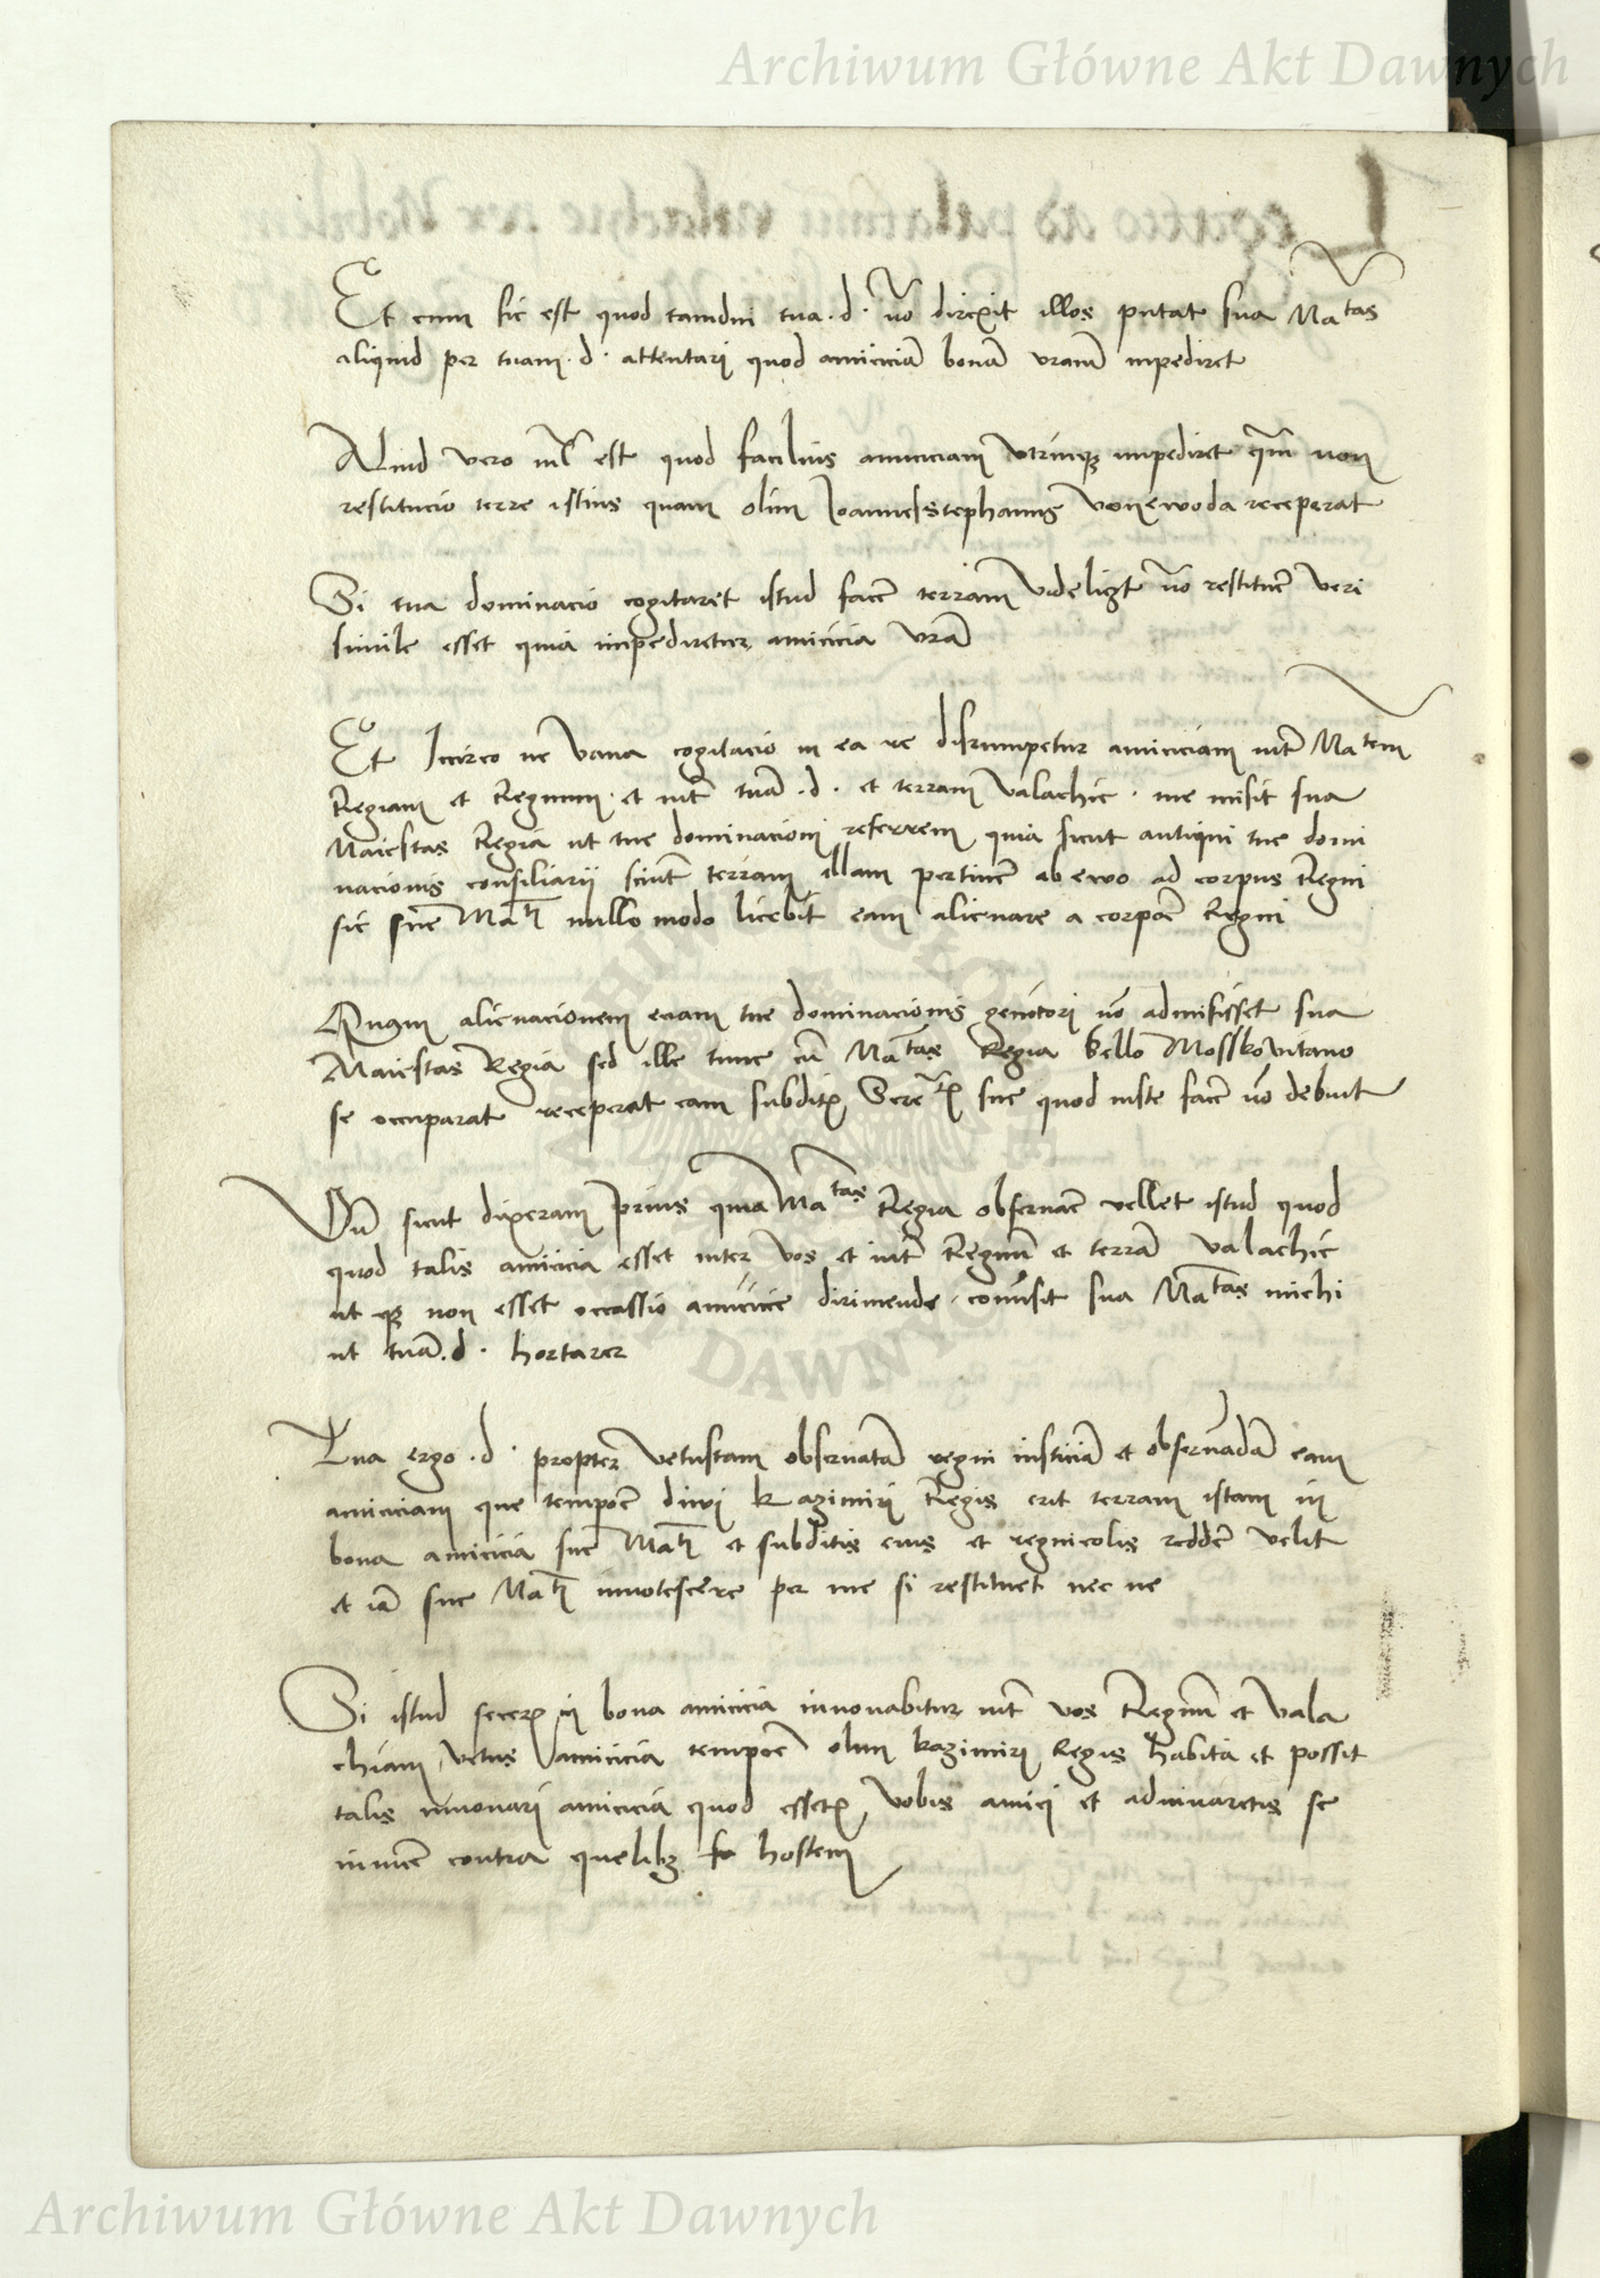 Archiwum Główne Akt Dawnych
Et cum sic est quod tamdiu tua .d. nō direxit illos putat sua Ma tas
aliquid per tuam .d. attentari quod amiciciā bonā vram̄ inpediret
Aliud vero nil̄ est quod facilius amiciciam utrimqꝫ impediret qm̄ non
restitucio terre istius quam olim Ioannes Stephanus voyewoda receperat
Si tua dominacio cogitaret istud facē terram videlicꝫt nō restituē veri
simile esset quia inpediretur amicicia vrā
Et Iccirco ne vana cogitacio in ea re disrumpetur amiciciam int̄ Ma tem
Regiam et Regnum et int̄ tuā .d. et terram valachie . me misit sua
Maiestas Regia ut tue dominacioni referrem quia sicut antiqui tue domi
nacionis consiliarii sciūt terram illam pertinē ab ewo ad corpus Regni
sic sue Ma ti nullo modo licebit eam alienare a corpoē Regni
Quam alienacionem eciam tue dominacionis genitori nō admisisset sua
Maiestas Regia sed ille tunc cū Ma tas Regia bello Mosskovitano
se occuparat receperat eam subditꝫ Sere tis sue quod iuste facē nō debuit
Vn̄ sicut dixeram prius quia Ma tas Regia observaē vellet istud quod
quod talis amicicia esset inter vos et int̄ Regnū et terrā valachie
ut qꝫ non esset occassio amicicie dirimende comisit sua Ma tas michi
ut tuā .d. hortarer
Tua ergo .d. propter vetustam observatā regni iusticiā et observādā eam
amiciciam que tempoē divi Kazimiri Regis erit terram istam in
bona amicicia sue Ma ti et subditis eius et regnicolis reddē velit
et iā sue Ma ti innotescere per me si restituet nec ne
Si istud fecerꝫ in bona amicicia innovabitur int̄ vos Regnū et Vala
chiam vetus amicicia tempoē olim kazimiri Regis habita et possit
talis innovari amicicia quod essetꝫ vobis amici et adiuvaretis se
invicē contra quelibꝫ hostem
ARCHIWUM GŁÓWNE AKT DAWNYCH
Archiwum Główne Akt Dawnych